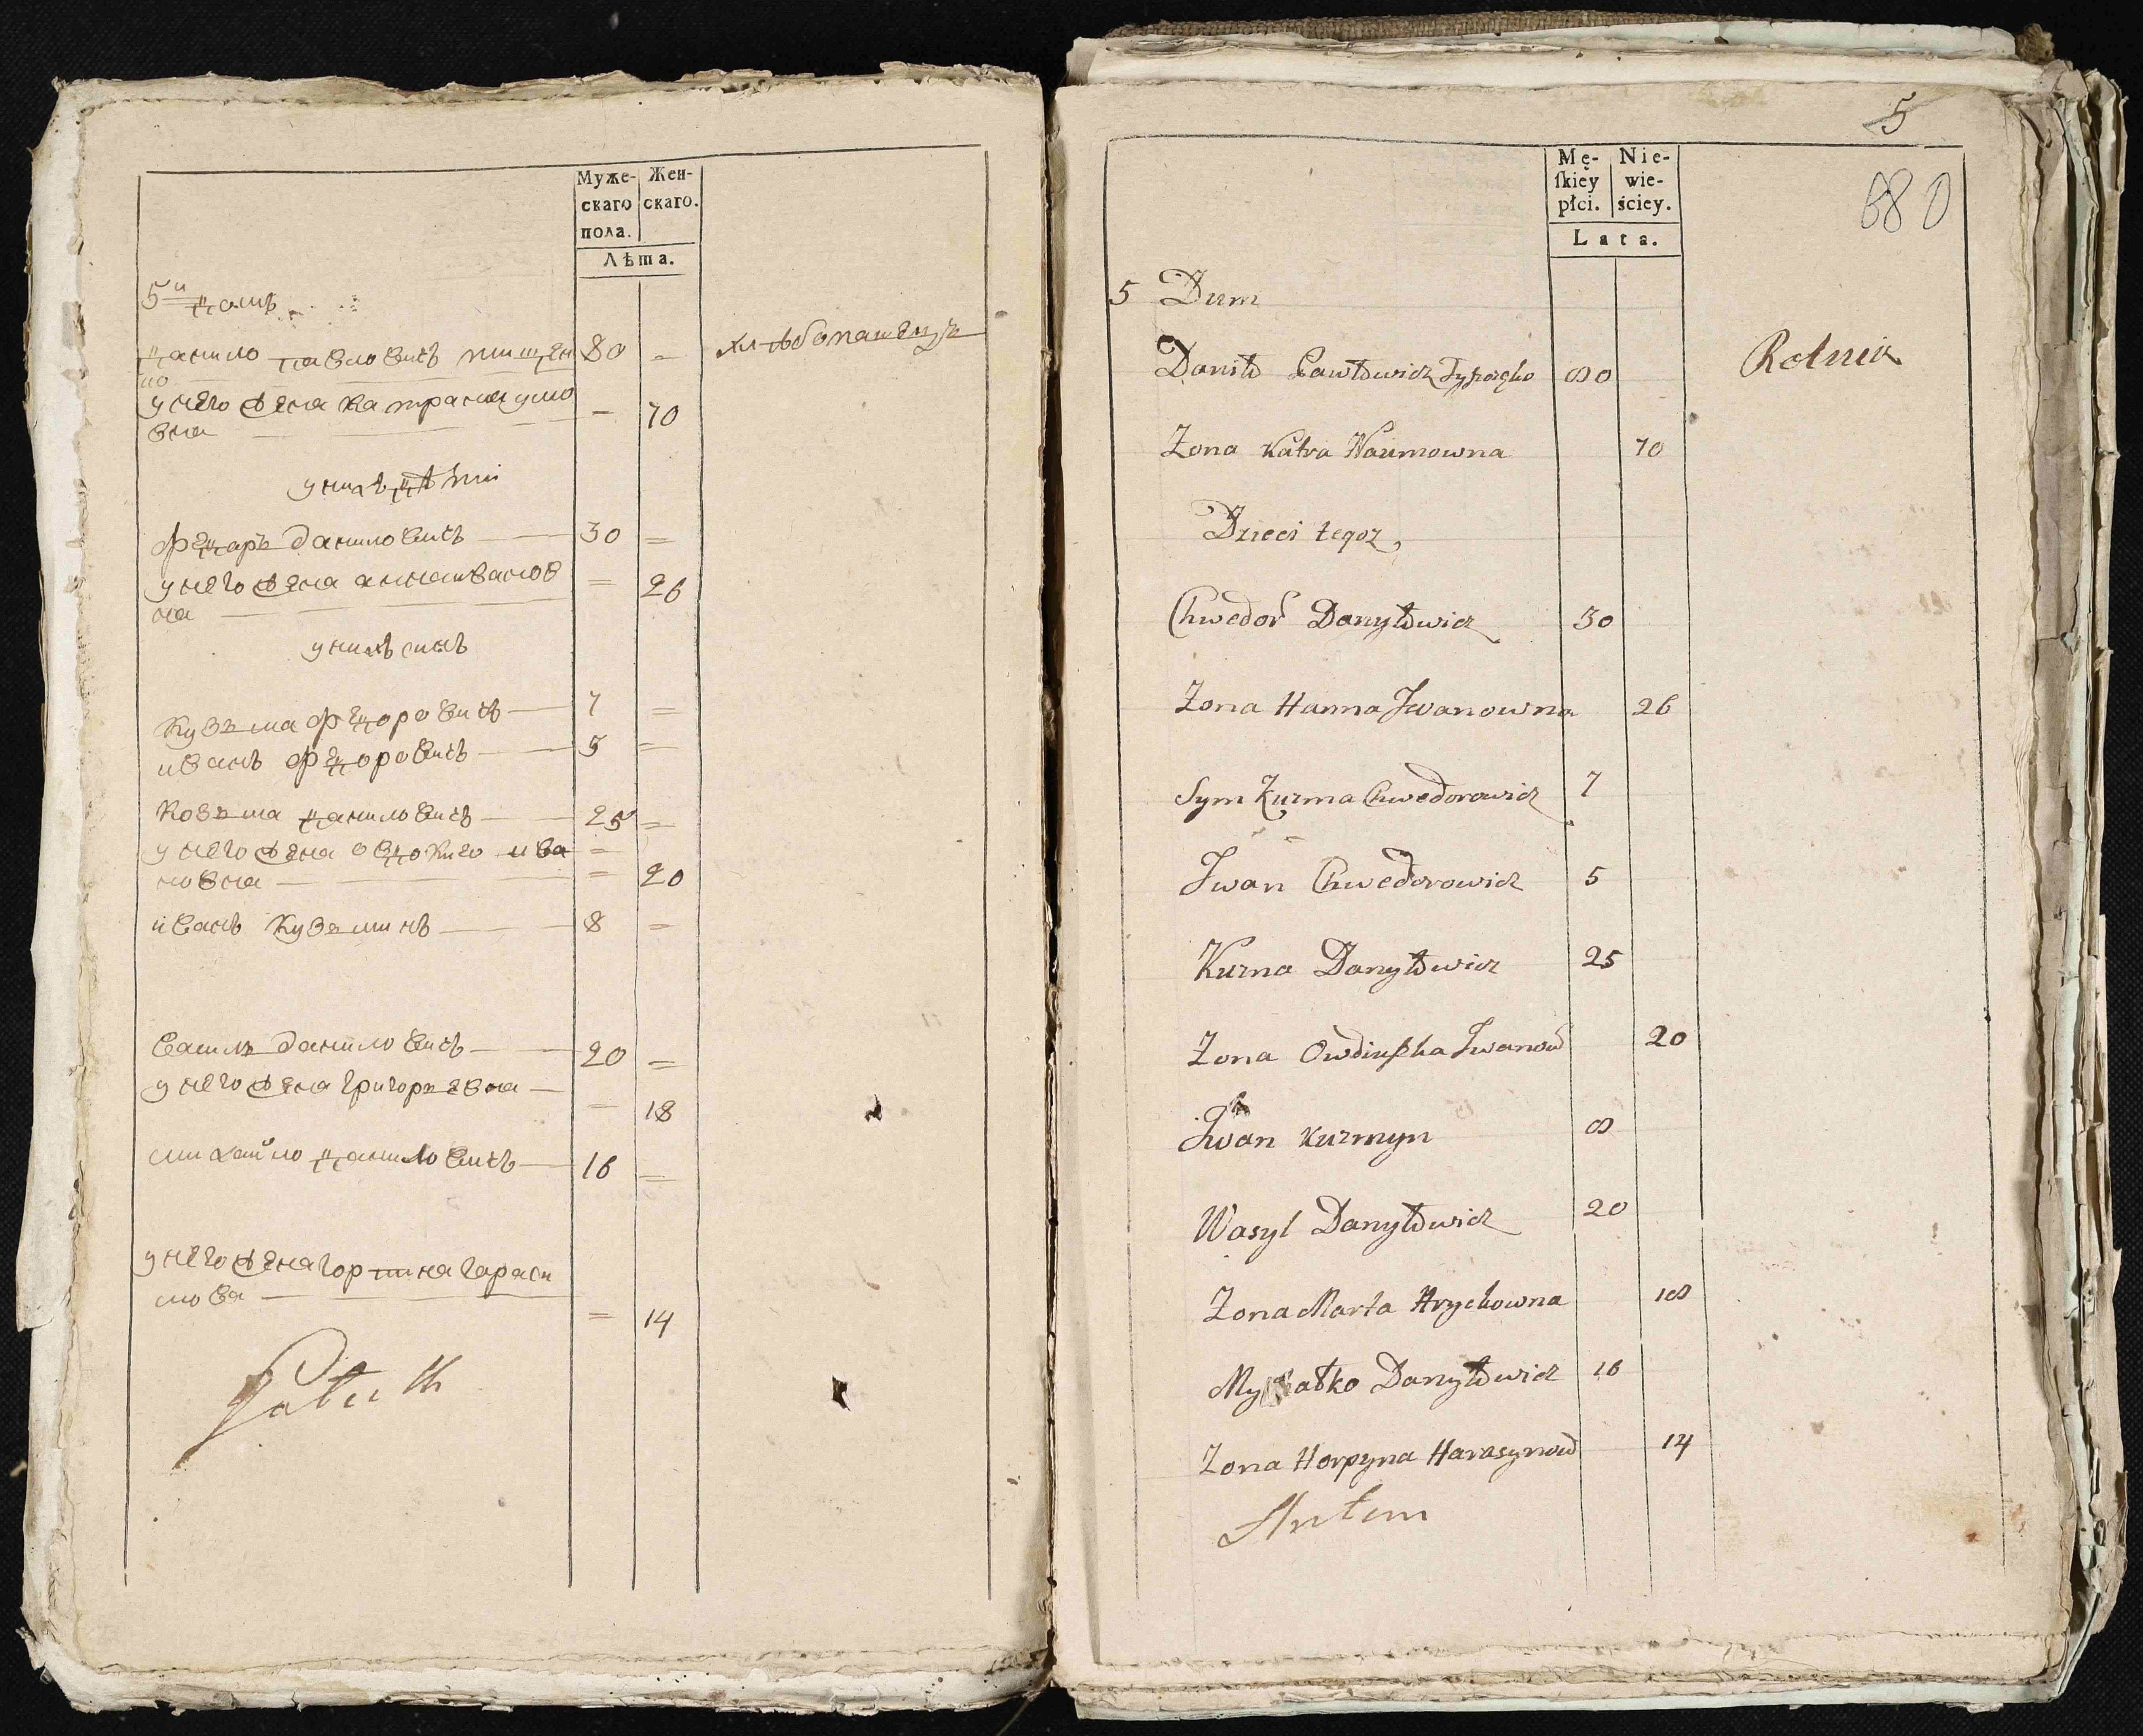 Муже-
скаго
пола.
Жен-
скаго.
Лѣта.
5й домъ
данило павловичъ тищен 80 – хлѣбопашецъ
ко
у него жена катра наумо – 70
вна
у нихъ дѣти
федаръ даниловичъ 30 =
у него жена анна иванов = 26
на
у нихъ синъ
Кузьма федоровичъ 7 =
иванъ федоровичъ 5 =
Козьма даниловичъ 25 =
у него жена ива =
новна = 20
иванъ Кузьминъ 8 =
василь даниловичъ 20 =
у него жена григорьевна – 18
михайло даниловичъ 16 =
у него жена горпина гараси
мова = 14
5
Mę-
ſkiey
płci.
Nie-
wie-
ściey.
Lata.
680
5 Dum
Daniło Pawłowicz 80 Rolnik
Zona Katra Naumowna 70
Dzieci tegoz
Chwedor Danyłowicz 30
Zona Hanna Iwanowna 26
Sym Kuzma Chwedorowicz 7
Iwan Chwedorowicz 5
Kuzma Danyłowicz 25
Zona Owdiuszka Iwanow 20
Iwan Kuzmyn 8
Wasyl Danyłowicz 20
Zona Marta Hryckowna 18
Mychałko Danyłowicz 16
Zona Horpyna Harasymow 14